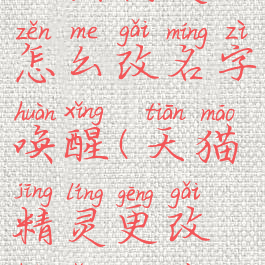 zěn me gǎi míng zì
怎么改名字
huàn xǐng tiān māo
唤醒(天猫
jīng líng gēng gǎi
精灵更改